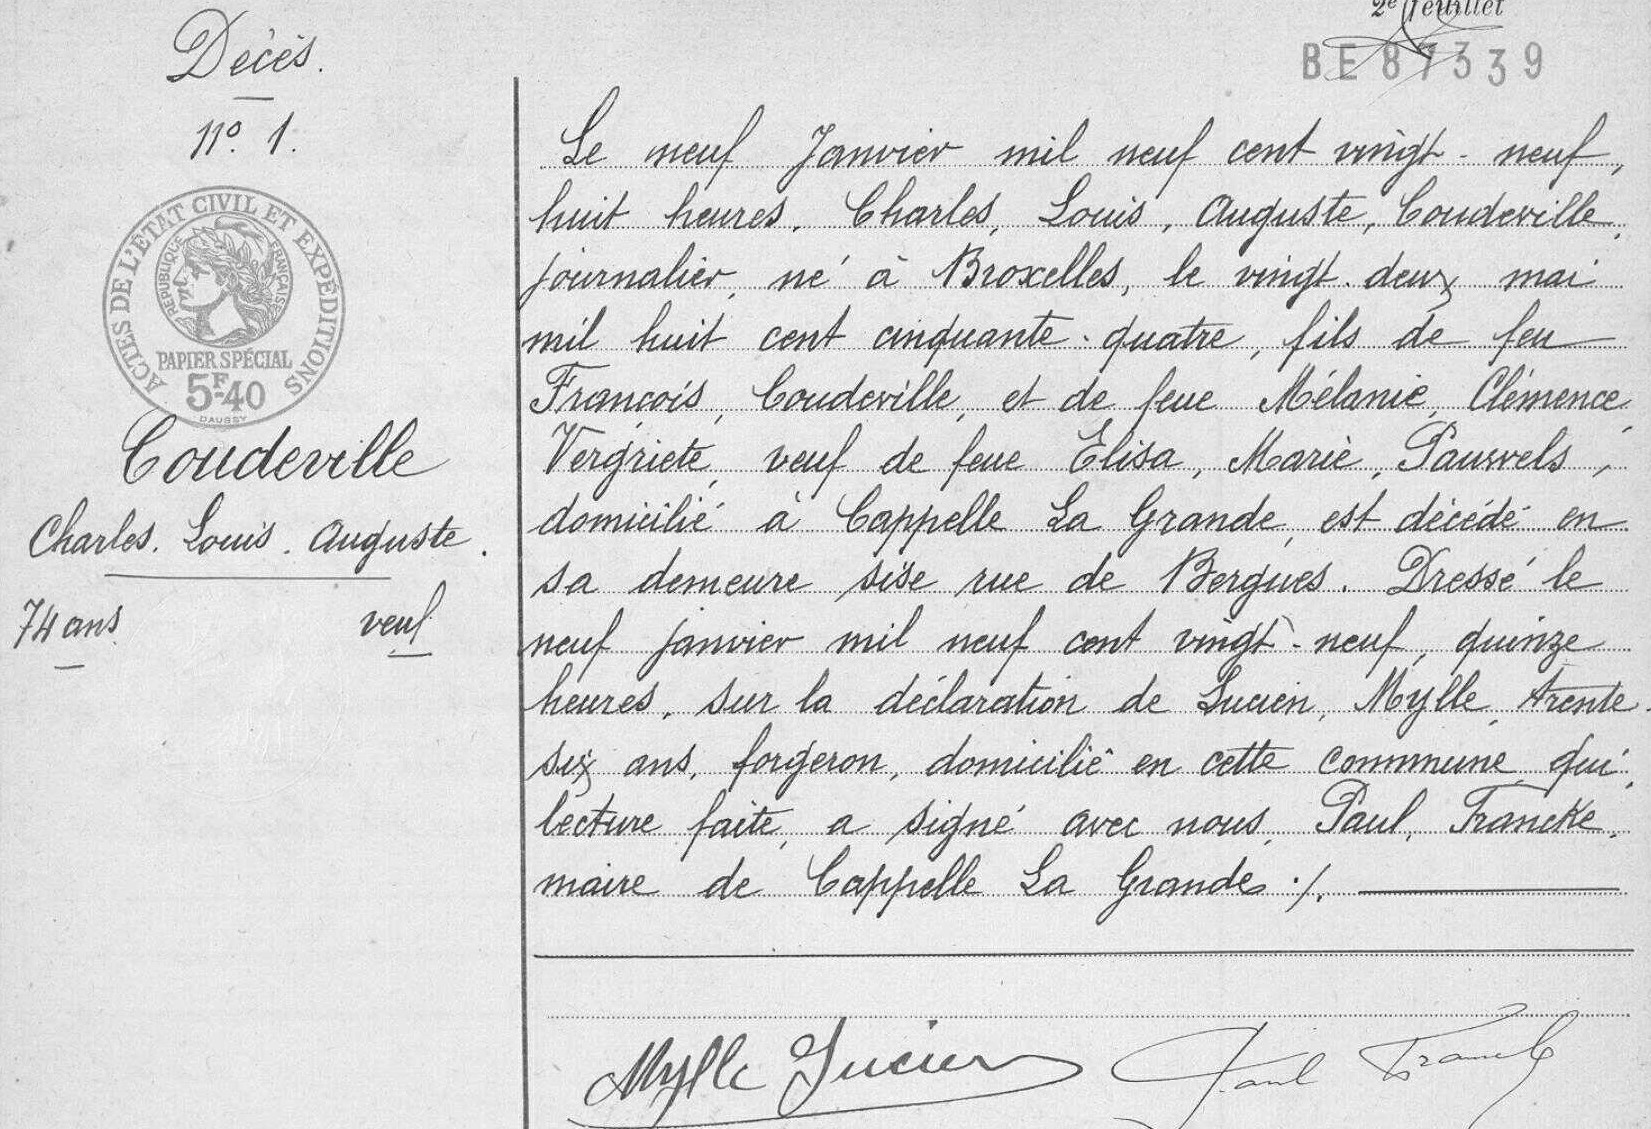 2e feuillet
BE 87339
Décès.
N° 1.
ACTES DE L'ÉTAT CIVIL ET EXPÉDITIONS
RÉPUBLIQUE FRANÇAISE
PAPIER SPÉCIAL
5F.40
DAUSSY
Coudeville
Charles. Louis. Auguste.
74 ans veuf
Le neuf Janvier mil neuf cent vingt-neuf,
huit heures, Charles, Louis, Auguste, Coudeville,
journalier, né à Broxelles, le vingt-deux mai
mil huit cent cinquante-quatre, fils de feu
François, Coudeville, et de feue Mélanie, Clémence,
Vergriete, veuf de feue Elisa, Marie, Pauwels,
domicilié à Cappelle La Grande, est décédé en
sa demeure sise rue de Bergues. Dressé le
neuf janvier mil neuf cent vingt-neuf, quinze
heures, sur la déclaration de Lucien, Mylle, trente-
six ans, forgeron, domicilié en cette commune, qui,
lecture faite, a signé avec nous, Paul, Francke,
maire de Cappelle La Grande ./.
Mylle Lucien Paul Francke